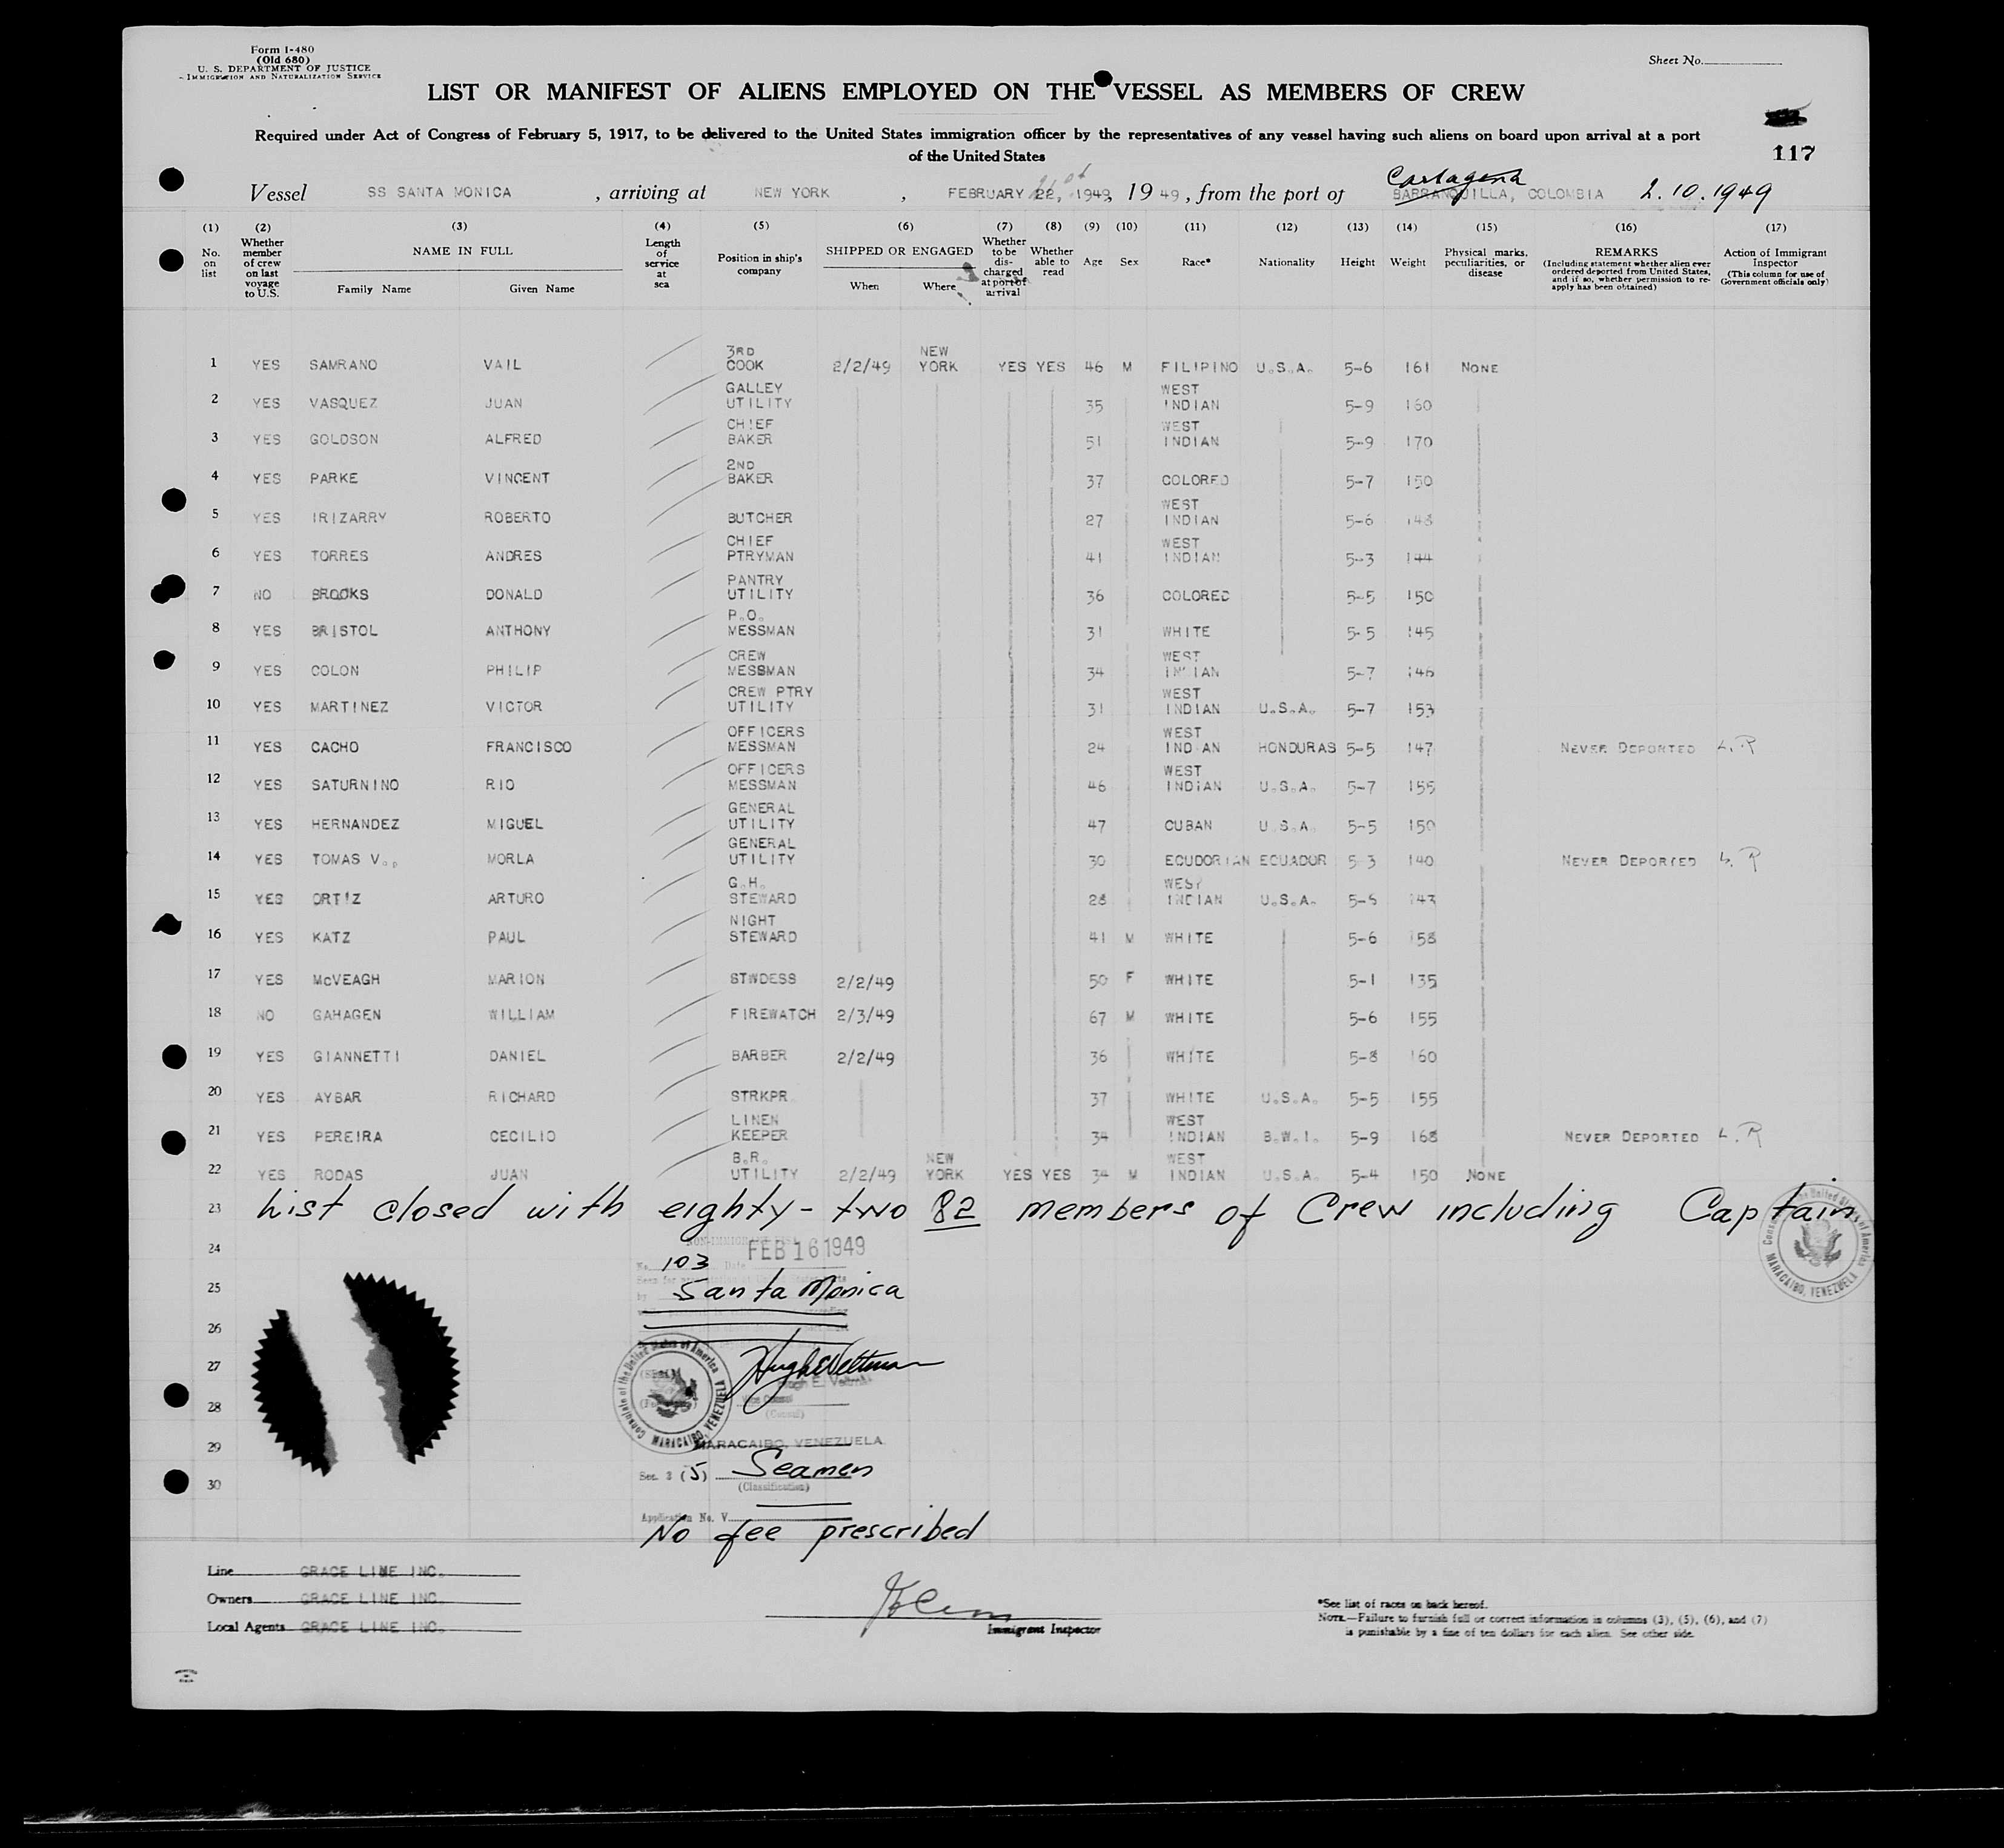 Form I-480
(Old 680)
U. S. DEPARTMENT OF JUSTICE
IMMIGRATION AND NATURALIZATION SERVICE
Sheet No.
LIST OR MANIFEST OF ALIENS EMPLOYED ON THE VESSEL AS MEMBERS OF CREW
Required under Act of Congress of February 5, 1917, to be delivered to the United States immigration officer by the representatives of any vessel having such aliens on board upon arrival at a port
of the United States
117
Cartagena
Vessel SS SANTA MONICA , arriving at NEW YORK , FEBRUARY 22, 1949, 19 49 , from the port of BARRANQUILLA, COLOMBIA 2.10.1949
(1) No. on list
(2) Whether member of crew on last voyage to U.S.
(3) NAME IN FULL Family Name Given Name
(4) Length of service at sea
(5) Position in ship's company
(6) SHIPPED OR ENGAGED When Where
(7) Whether to be discharged at port of arrival
(8) Whether able to read
(9) Age
(10) Sex
(11) Race*
(12) Nationality
(13) Height
(14) Weight
(15) Physical marks, peculiarities, or disease
(16) REMARKS (Including statement whether alien ever ordered deported from United States, and if so, whether permission to re-apply has been obtained)
(17) Action of Immigrant Inspector (This column for use of Government officials only)
1 YES SAMRANO VAIL 3RD COOK 2/2/49 NEW YORK YES YES 46 M FILIPINO U.S.A. 5-6 161 NONE
2 YES VASQUEZ JUAN GALLEY UTILITY 35 WEST INDIAN 5-9 160
3 YES GOLDSON ALFRED CHIEF BAKER 51 WEST INDIAN 5-9 170
4 YES PARKE VINCENT 2ND BAKER 37 COLORED 5-7 150
5 YES IRIZARRY ROBERTO BUTCHER 27 WEST INDIAN 5-6 148
6 YES TORRES ANDRES CHIEF PTRYMAN 41 WEST INDIAN 5-3 144
7 NO BROOKS DONALD PANTRY UTILITY 36 COLORED 5-5 150
8 YES BRISTOL ANTHONY P.O. MESSMAN 31 WHITE 5-5 145
9 YES COLON PHILIP CREW MESSMAN 34 WEST INDIAN 5-7 146
10 YES MARTINEZ VICTOR CREW PTRY UTILITY 31 WEST INDIAN U.S.A. 5-7 153
11 YES CACHO FRANCISCO OFFICERS MESSMAN 24 WEST INDIAN HONDURAS 5-5 147 NEVER DEPORTED L.R
12 YES SATURNINO RIO OFFICERS MESSMAN 46 WEST INDIAN U.S.A. 5-7 155
13 YES HERNANDEZ MIGUEL GENERAL UTILITY 47 CUBAN U.S.A. 5-5 150
14 YES TOMAS V., MORLA GENERAL UTILITY 30 ECUDORIAN ECUADOR 5-3 140 NEVER DEPORTED L.R
15 YES ORTIZ ARTURO G.H. STEWARD 28 WEST INDIAN U.S.A. 5-6 143
16 YES KATZ PAUL NIGHT STEWARD 41 M WHITE 5-6 158
17 YES McVEAGH MARION STWDESS 2/2/49 50 F WHITE 5-1 135
18 NO GAHAGEN WILLIAM FIREWATCH 2/3/49 67 M WHITE 5-6 155
19 YES GIANNETTI DANIEL BARBER 2/2/49 36 WHITE 5-8 160
20 YES AYBAR RICHARD STRKPR. 37 WHITE U.S.A. 5-5 155
21 YES PEREIRA CECILIO LINEN KEEPER 34 WEST INDIAN B.W.I. 5-9 168 NEVER DEPORTED L.R
22 YES RODAS JUAN B.R. UTILITY 2/2/49 NEW YORK YES YES 34 M WEST INDIAN U.S.A. 5-4 150 NONE
23 List closed with eighty-two 82 members of Crew including Captain
24 FEB 16 1949
No. 103 Date
25 Santa Monica
26
27 Hugh E Veltman
28 (Consul)
Consulate of the United States of America MARACAIBO, VENEZUELA
29 MARACAIBO, VENEZUELA
Sec. 3 (5) Seamen
30 (Classification)
Application No. V
No fee prescribed
Line GRACE LINE INC.
Owners GRACE LINE INC.
Local Agents GRACE LINE INC.
Immigrant Inspector
*See list of races on back hereof.
NOTE.—Failure to furnish full or correct information in columns (3), (5), (6), and (7)
is punishable by a fine of ten dollars for each alien. See other side.